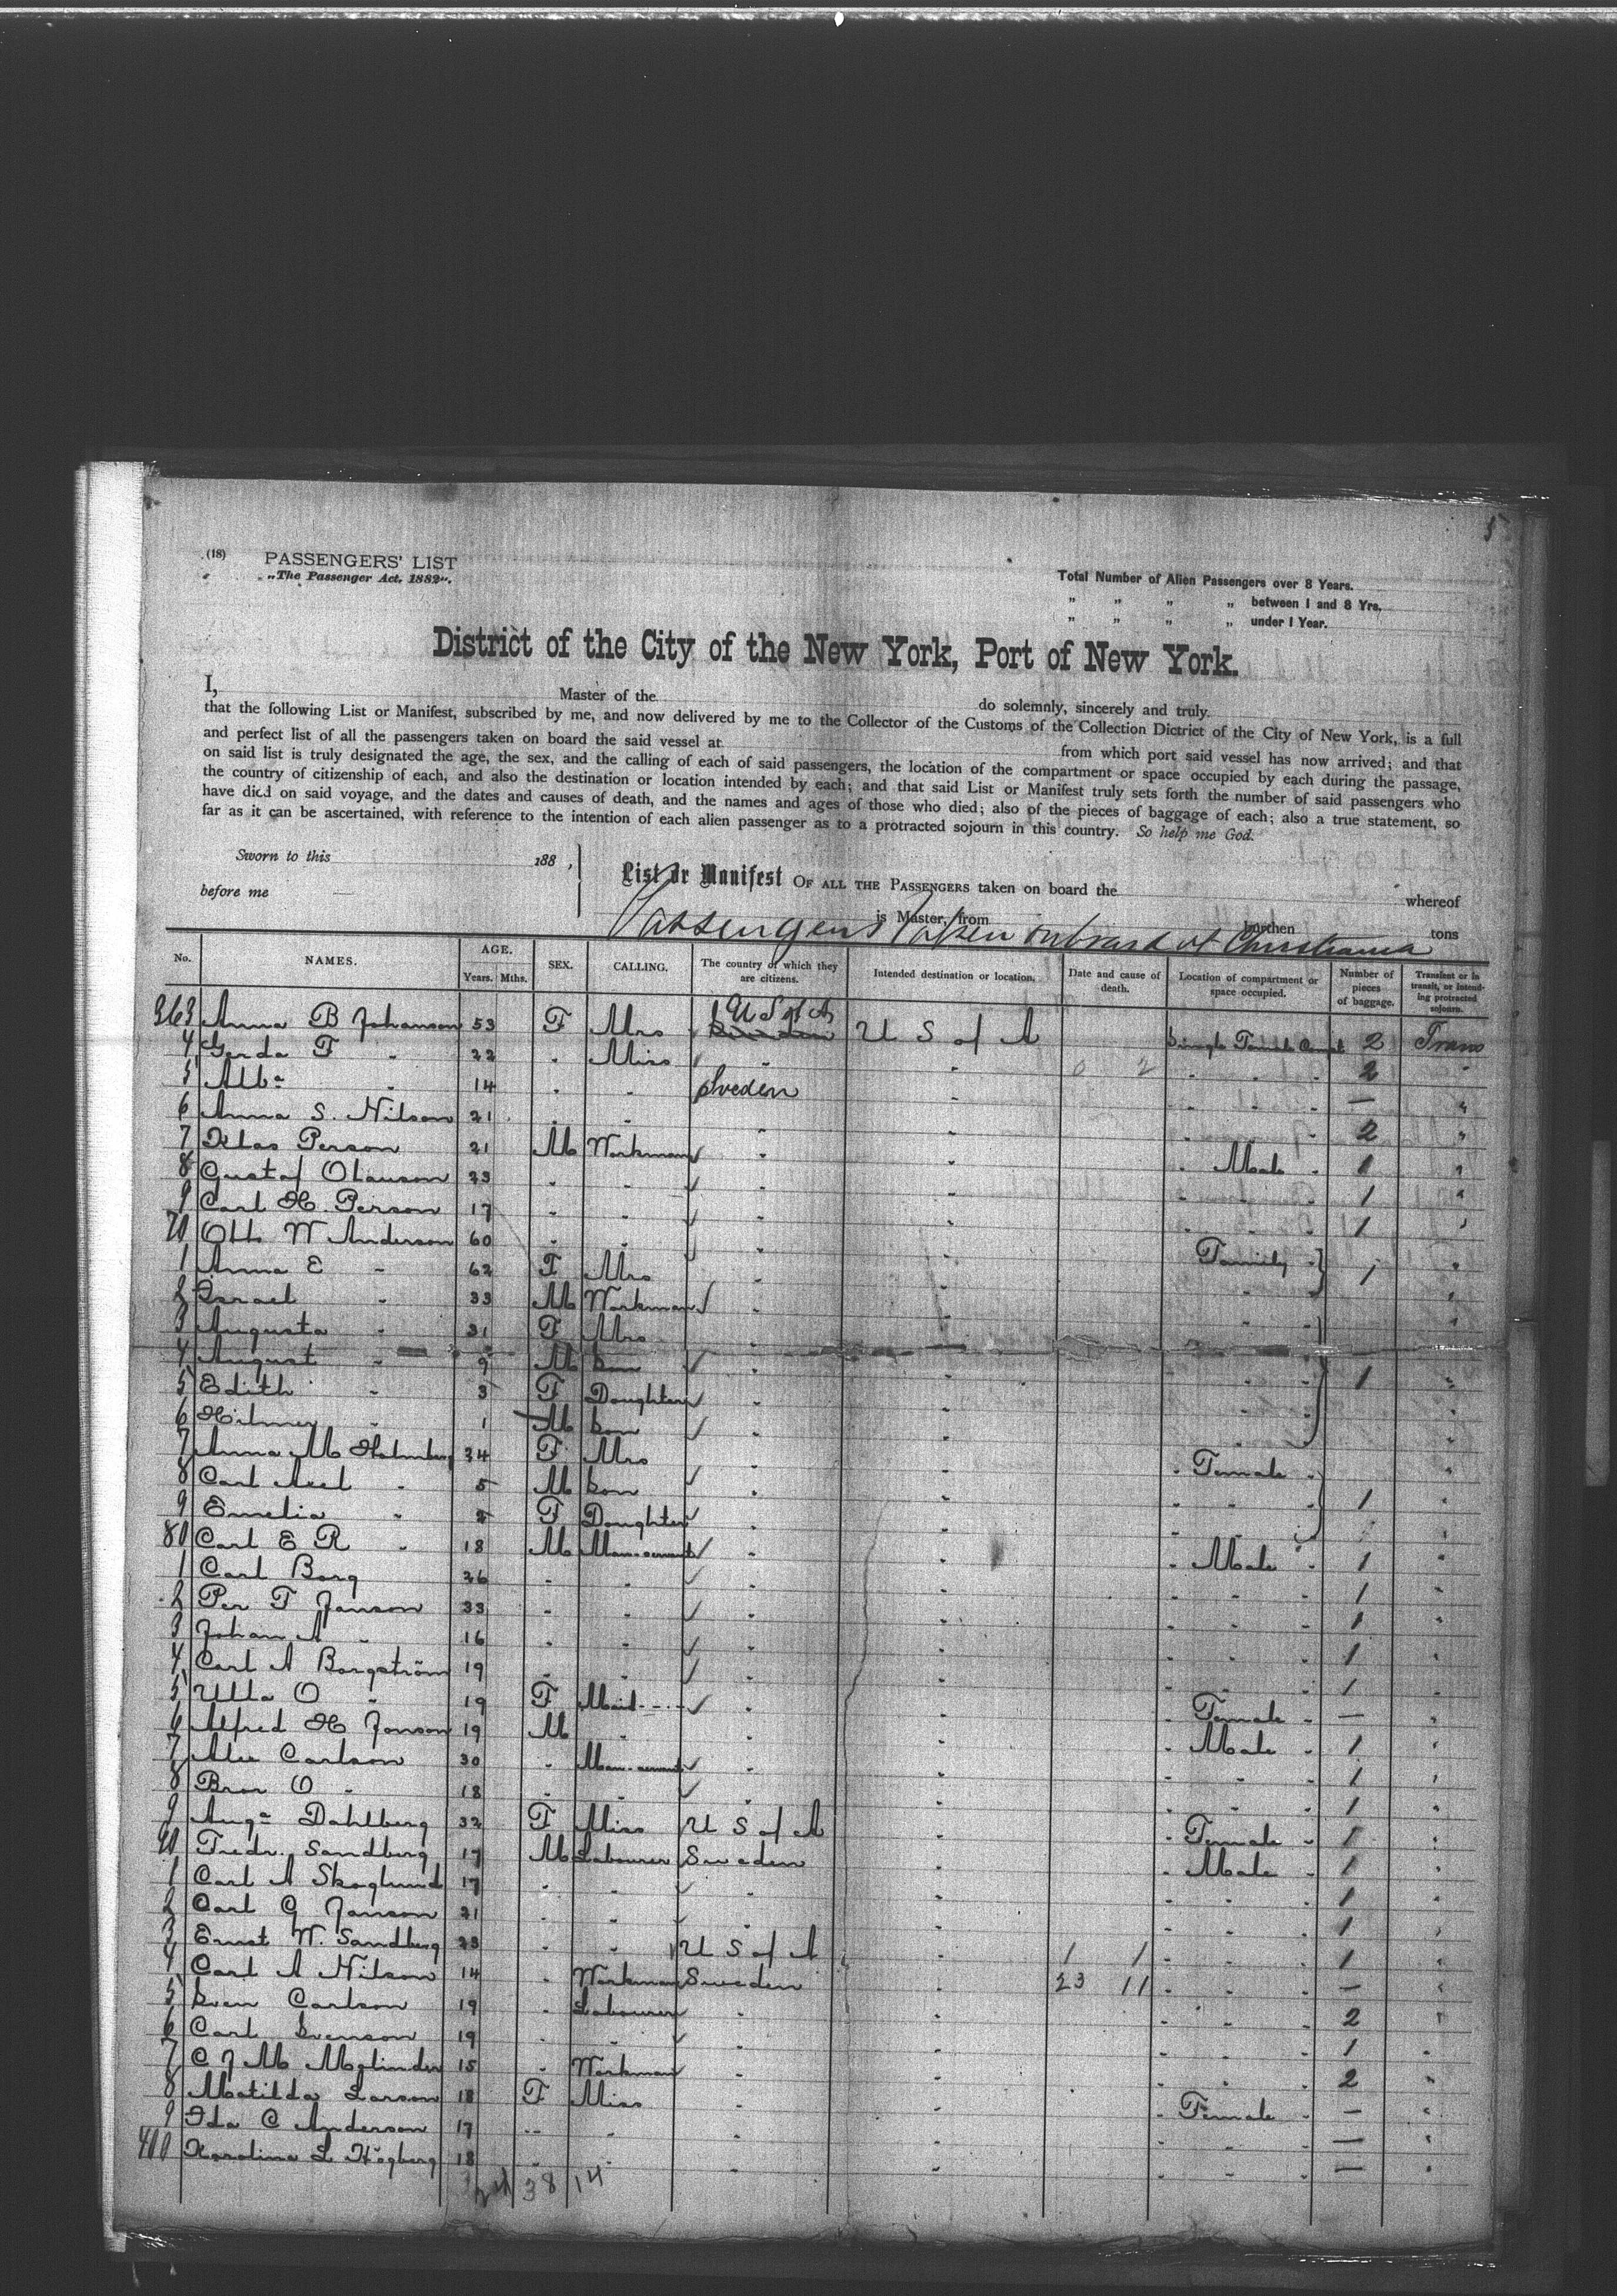 5
(18) PASSENGERS' LIST
„The Passenger Act, 1882".
Total Number of Alien Passengers over 8 Years.
„ „ „ „ between 1 and 8 Yrs.
„ „ „ „ under 1 Year.
District of the City of the New York, Port of New York.
I, Master of the do solemnly, sincerely and truly
that the following List or Manifest, subscribed by me, and now delivered by me to the Collector of the Customs of the Collection Dictrict of the City of New York, is a full
and perfect list of all the passengers taken on board the said vessel at from which port said vessel has now arrived; and that
on said list is truly designated the age, the sex, and the calling of each of said passengers, the location of the compartment or space occupied by each during the passage,
the country of citizenship of each, and also the destination or location intended by each; and that said List or Manifest truly sets forth the number of said passengers who
have died on said voyage, and the dates and causes of death, and the names and ages of those who died; also of the pieces of baggage of each; also a true statement, so
far as it can be ascertained, with reference to the intention of each alien passenger as to a protracted sojourn in this country. So help me God.
Sworn to this 188 ,
before me
List or Manifest OF ALL THE PASSENGERS taken on board the whereof
is Master, from burthen tons
Passengers taken onboard at Christiania
No. NAMES. AGE. Years. Mths. SEX. CALLING. The country of which they are citizens. Intended destination or location. Date and cause of death. Location of compartment or space occupied. Number of pieces of baggage. Transient or in transit, or intending protracted sojourn.
363 Anna B Johanson 53 F Mrs U S of A U S of A Single Female Compt 2 Trans
4 Gerda F " 22 " Miss " " " " " 2 "
5 Alba " 14 " " Sweden " " " " — "
6 Anna S. Nilson 21 " " " " " " " 2 "
7 Klas Person 21 M Workman " " " Male " 1 "
8 Gustaf Olauson 23 " " " " " " " 1 "
9 Carl H. Person 17 " " " " " " " 1 "
70 Otto W Anderson 60 " " " " Family "
1 Anna E " 62 F Mrs " " " " 1 "
2 Israel " 33 M Workman " " " " "
3 Augusta " 31 F Mrs " " " " "
4 August " 9 M Son " " " " 1 "
5 Edith " 3 F Daughter " " " " "
6 Hilmer " 1 M Son " " " " "
7 Anna M Holmberg 34 F Mrs " " " Female " "
8 Carl Axel " 5 M Son " " " " " 1 "
9 Emelia " F Daughter " " " " " "
80 Carl E R " 18 M Man-servant " " " Male " 1 "
1 Carl Borg 26 " " " " " " " 1 "
2 Per F Janson 33 " " " " " " " 1 "
3 Johan A " 16 " " " " " " " 1 "
4 Carl A Borgström 19 " " " " " " " 1 "
5 Ulla O " 19 F Maid " " " Female " — "
6 Alfred H Jonson 19 M " " " " Male " 1 "
7 Alex Carlson 30 " Man-servant " " " " " 1 "
8 Bror O " 18 " " " " " " " 1 "
9 Auga Dahlberg 32 F Miss U S of A " " Female " 1 "
90 Fredr. Sandberg 17 M Labourer Sweden " " Male " 1 "
1 Carl A Skoglund 17 " " " " " " " 1 "
2 Carl G Janson 21 " " " " " " " 1 "
3 Ernst W. Sandberg 23 " " U S of A " 1 1 " " " 1 "
4 Carl A Nilson 14 " Workman Sweden " 23 11 " " " — "
5 Sven Carlson 19 " Labourer " " " " " 2 "
6 Carl Svenson 19 " " " " " " " 1 "
7 C J M Molinder 15 " Workman " " " " " 2 "
8 Matilda Larson 18 F Miss " " " Female " — "
9 Ida C Anderson 17 " " " " " " " — "
400 Karolina L Högberg 18 " " " " " " " — "
38 14